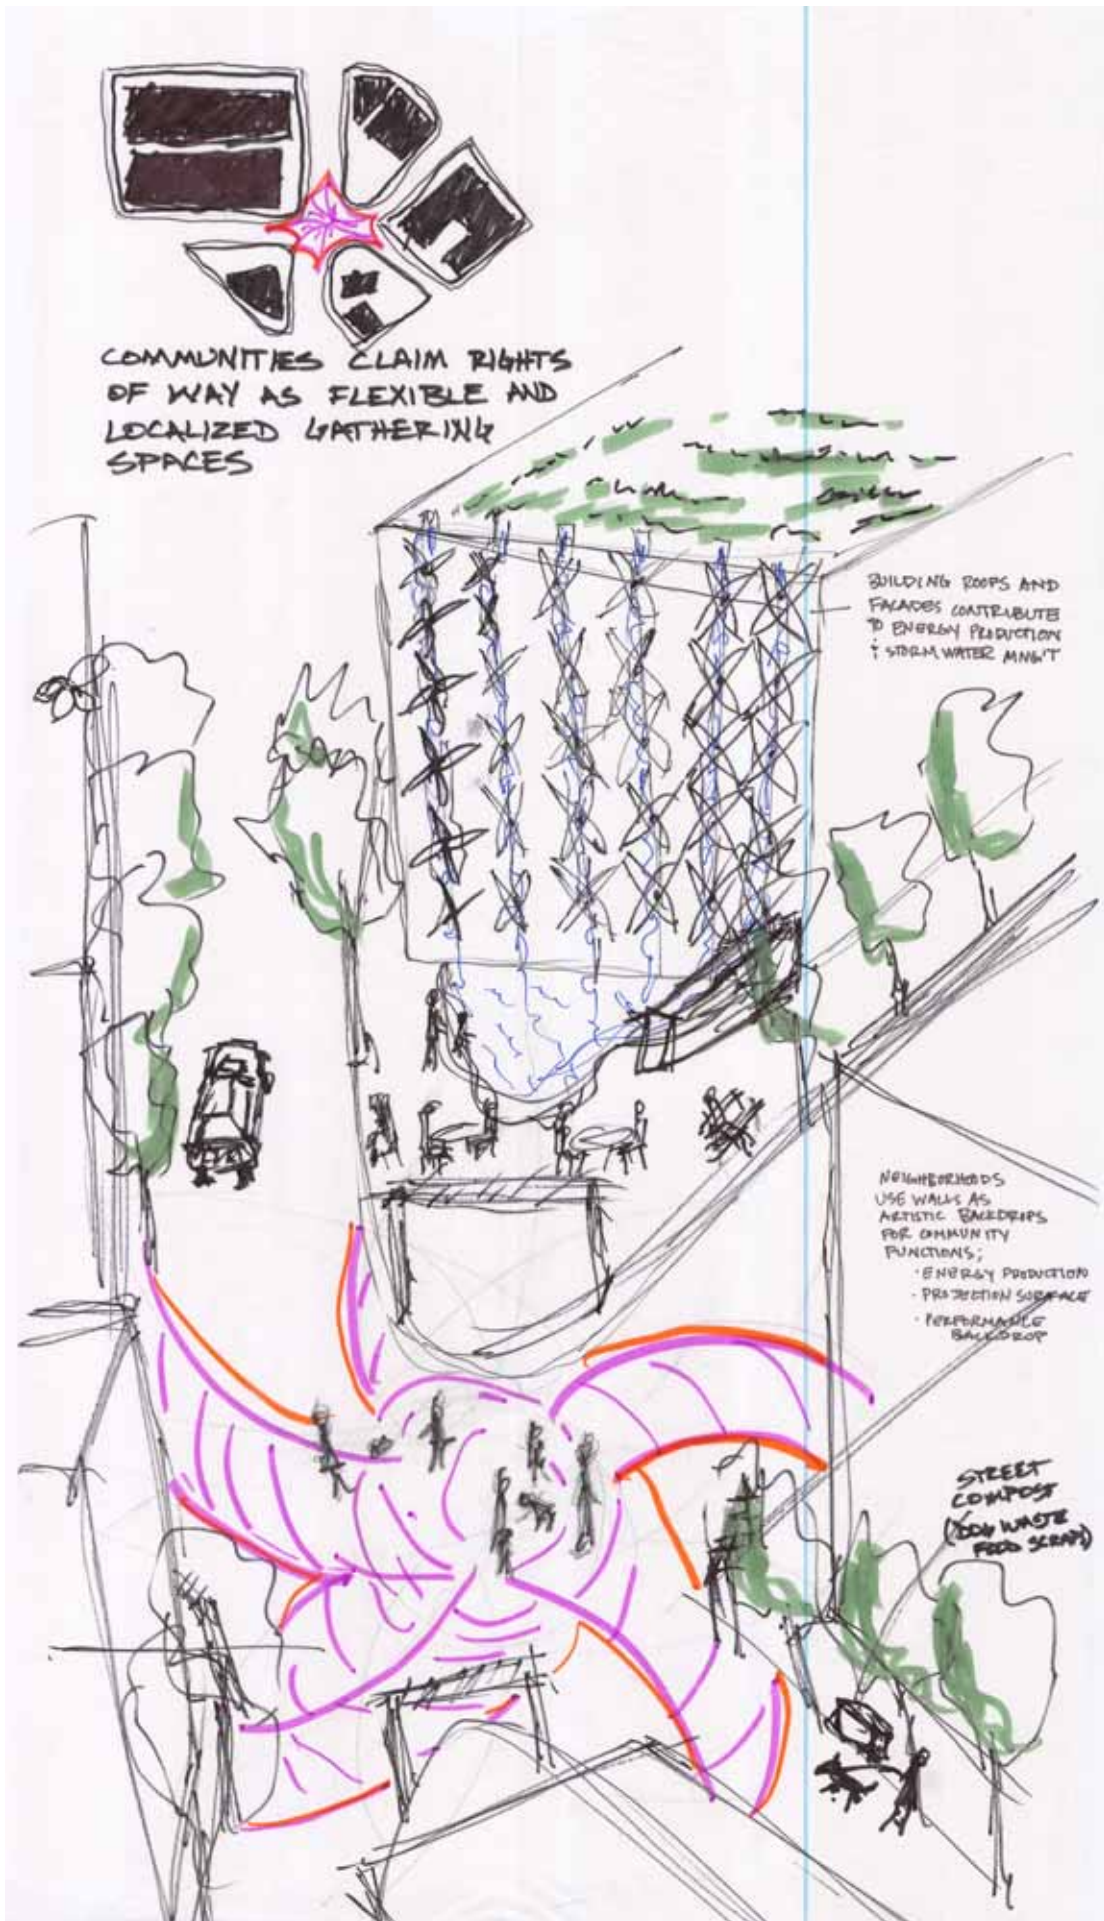 COMMUNITIES CLAIM RIGHTS
OF WAY AS FLEXIBLE AND
LOCALIZED GATHERING
SPACES
BUILDING ROOFS AND
FACADES CONTRIBUTE
TO ENERGY PRODUCTION
& STORM WATER MNG'T
NEIGHBORHOODS
USE WALLS AS
ARTISTIC BACKDROPS
FOR COMMUNITY
FUNCTIONS;
· ENERGY PRODUCTION
· PROJECTION SURFACE
· PERFORMANCE
BACKDROP
STREET
COMPOST
(DOG WASTE
FOOD SCRAPS)